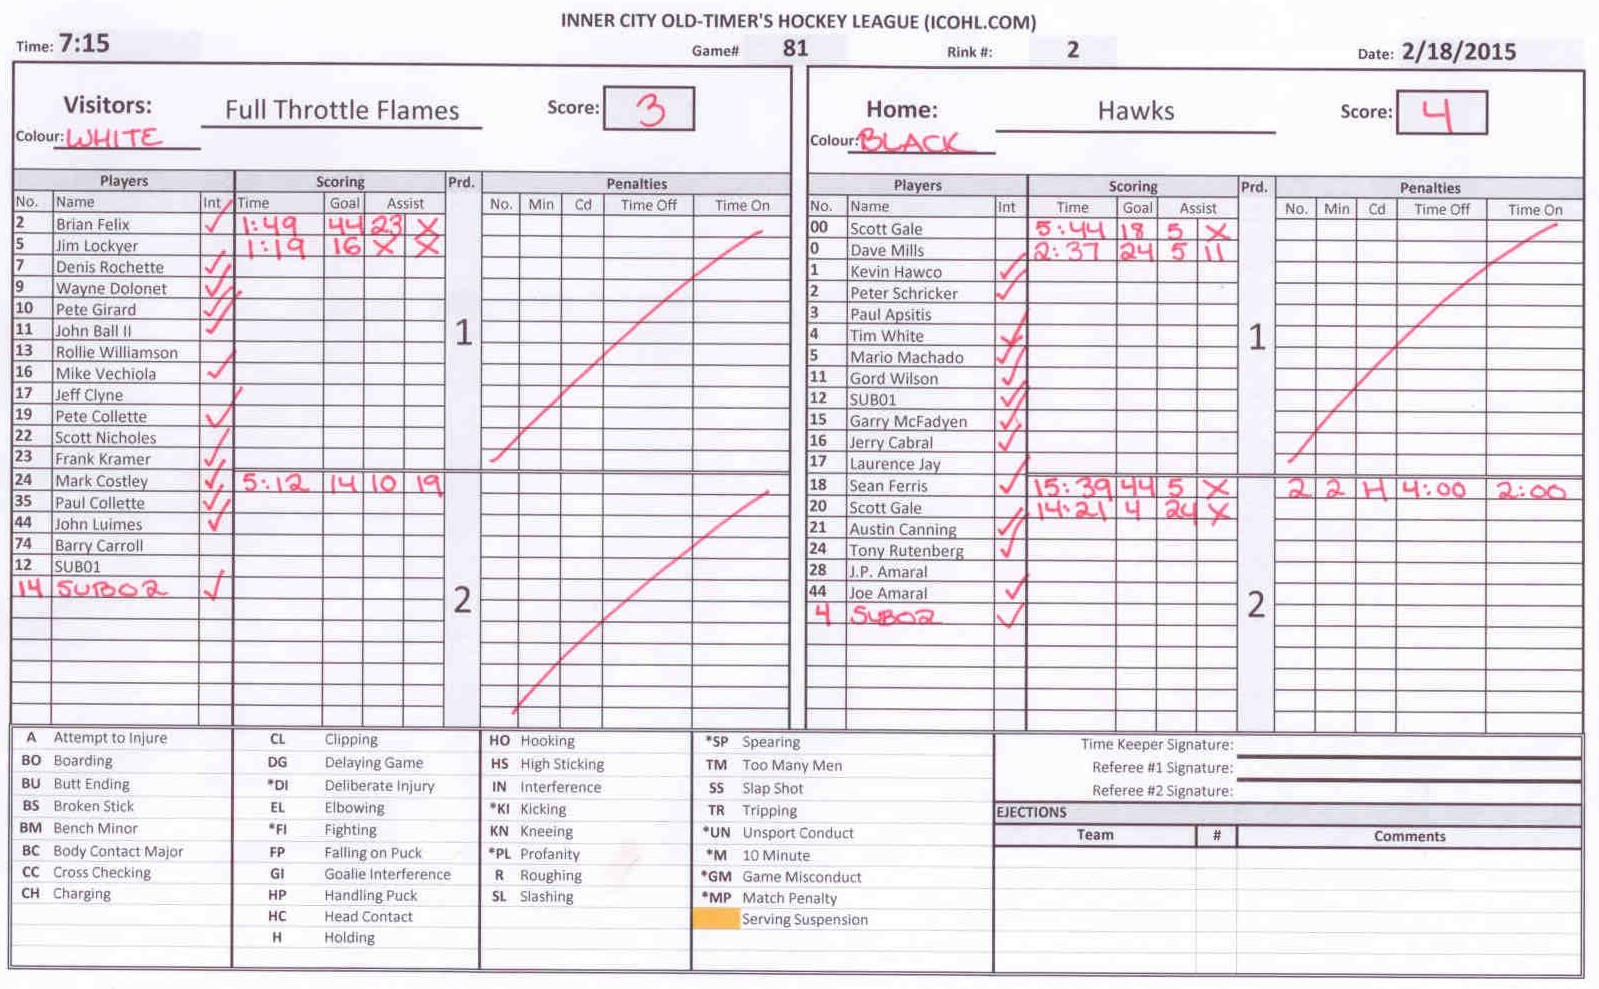 INNER CITY OLD-TIMER'S HOCKEY LEAGUE (ICOHL.COM)
Time: 7:15 Game# 81 Rink #: 2 Date: 2/18/2015
Visitors: Full Throttle Flames Score: 3
Colour: WHITE
Players Scoring Prd. Penalties
No. Name Int Time Goal Assist No. Min Cd Time Off Time On
2 Brian Felix ✓ 1:49 44 23 X
5 Jim Lockyer 1:19 16 X X
7 Denis Rochette ✓
9 Wayne Dolonet ✓
10 Pete Girard ✓
11 John Ball II ✓
1
13 Rollie Williamson
16 Mike Vechiola ✓
17 Jeff Clyne
19 Pete Collette ✓
22 Scott Nicholes
23 Frank Kramer ✓
24 Mark Costley ✓ 5:12 14 10 19
35 Paul Collette ✓
44 John Luimes ✓
74 Barry Carroll
12 SUB01
14 SUB02 ✓
2
Home: Hawks Score: 4
Colour: BLACK
Players Scoring Prd. Penalties
No. Name Int Time Goal Assist No. Min Cd Time Off Time On
00 Scott Gale 5:44 18 5 X
0 Dave Mills 2:37 24 5 11
1 Kevin Hawco ✓
2 Peter Schricker ✓
3 Paul Apsitis
4 Tim White ✓
1
5 Mario Machado ✓
11 Gord Wilson ✓
12 SUB01 ✓
15 Garry McFadyen ✓
16 Jerry Cabral ✓
17 Laurence Jay
18 Sean Ferris ✓ 15:39 44 5 X 2 2 H 4:00 2:00
20 Scott Gale 14:21 4 24 X
21 Austin Canning ✓
24 Tony Rutenberg ✓
28 J.P. Amaral
44 Joe Amaral ✓
2
4 SUB02 ✓
A Attempt to Injure
BO Boarding
BU Butt Ending
BS Broken Stick
BM Bench Minor
BC Body Contact Major
CC Cross Checking
CH Charging
CL Clipping
DG Delaying Game
*DI Deliberate Injury
EL Elbowing
*FI Fighting
FP Falling on Puck
GI Goalie Interference
HP Handling Puck
HC Head Contact
H Holding
HO Hooking
HS High Sticking
IN Interference
*KI Kicking
KN Kneeing
*PL Profanity
R Roughing
SL Slashing
*SP Spearing
TM Too Many Men
SS Slap Shot
TR Tripping
*UN Unsport Conduct
*M 10 Minute
*GM Game Misconduct
*MP Match Penalty
Serving Suspension
Time Keeper Signature:
Referee #1 Signature:
Referee #2 Signature:
EJECTIONS
Team # Comments